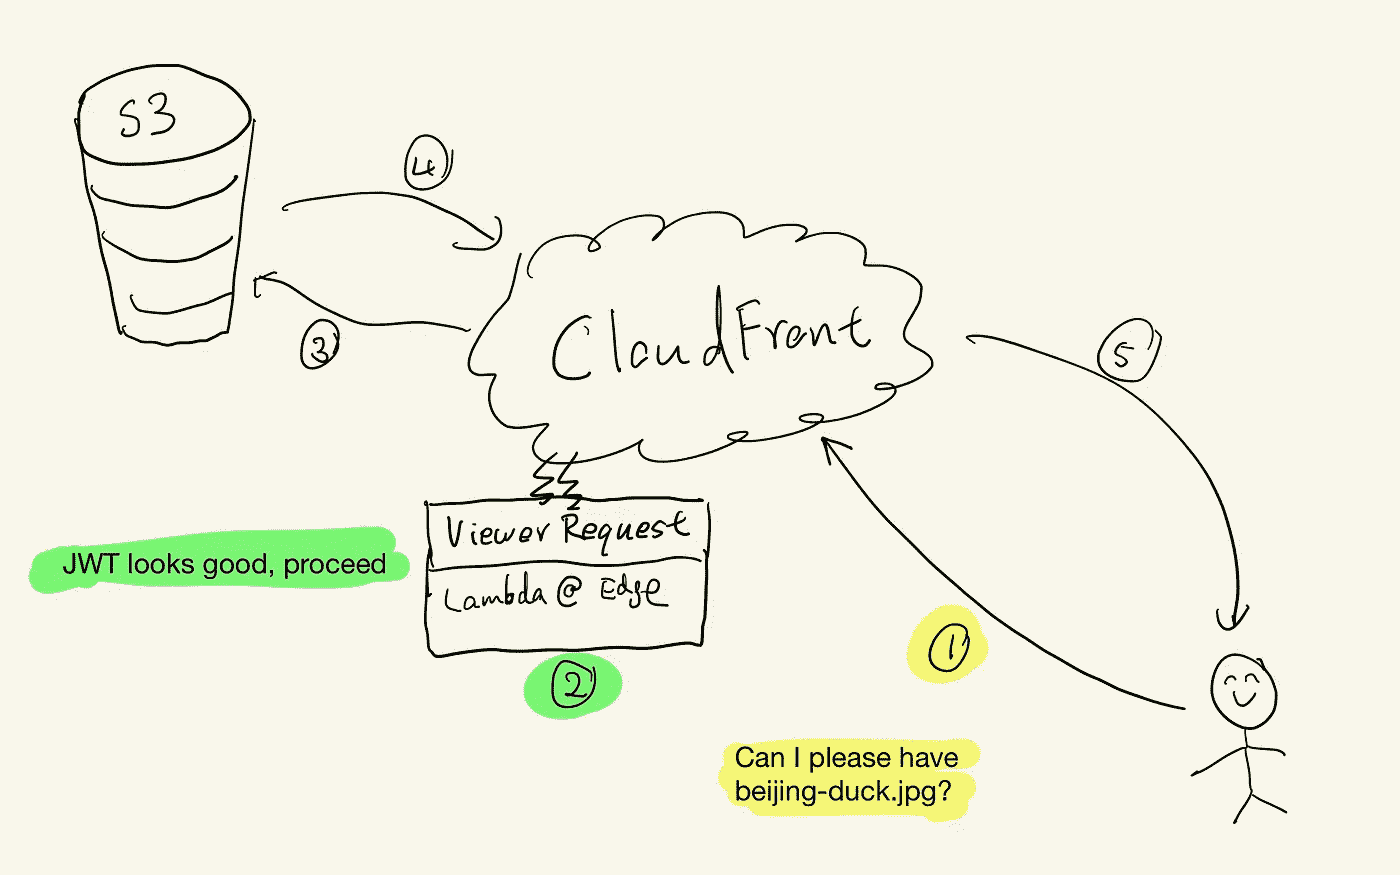 S3
4
3
CloudFront
5
Viewer Request
Lambda @ Edge
JWT looks good, proceed
2
1
Can I please have
beijing-duck.jpg?